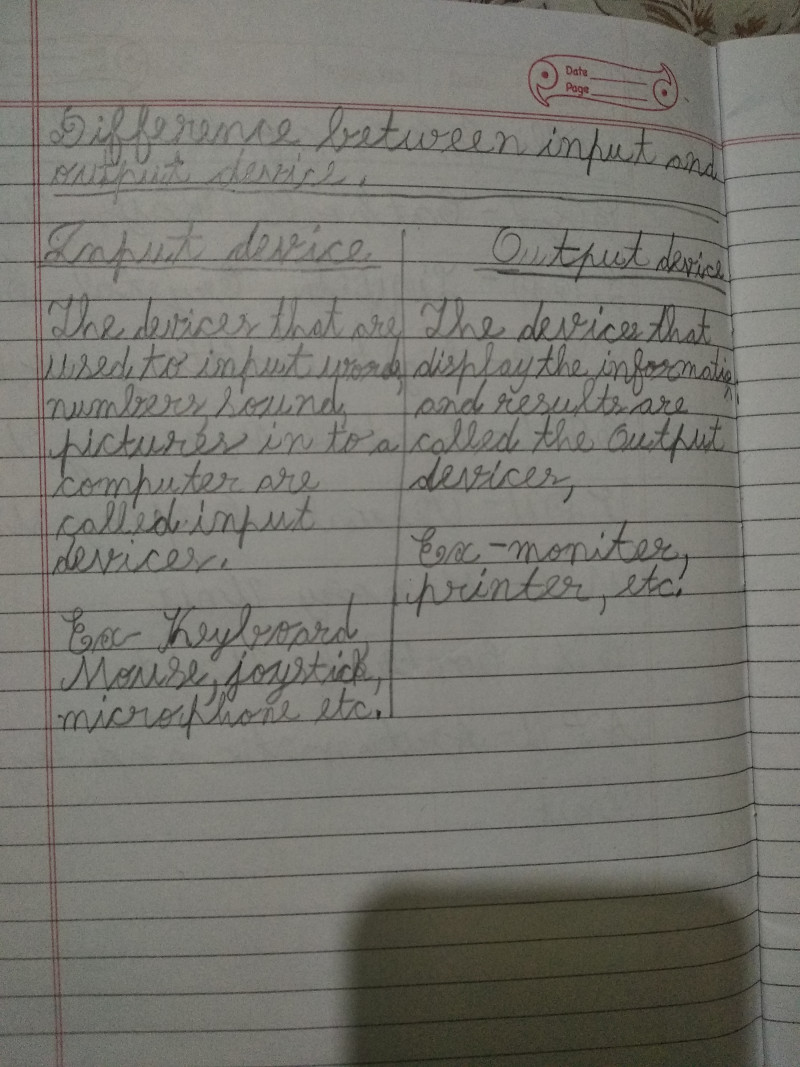 Date
Page
Difference between input and
output device.
Input device
The devices that are
used to input words,
numbers, sound,
pictures in to a
computer are
called input
devices.
Ex- Keyboard,
Mouse, joystick,
microphone etc.
Output device
The devices that
display the informatio
and results are
called the Output
devices,
Ex-moniter,
printer, etc.